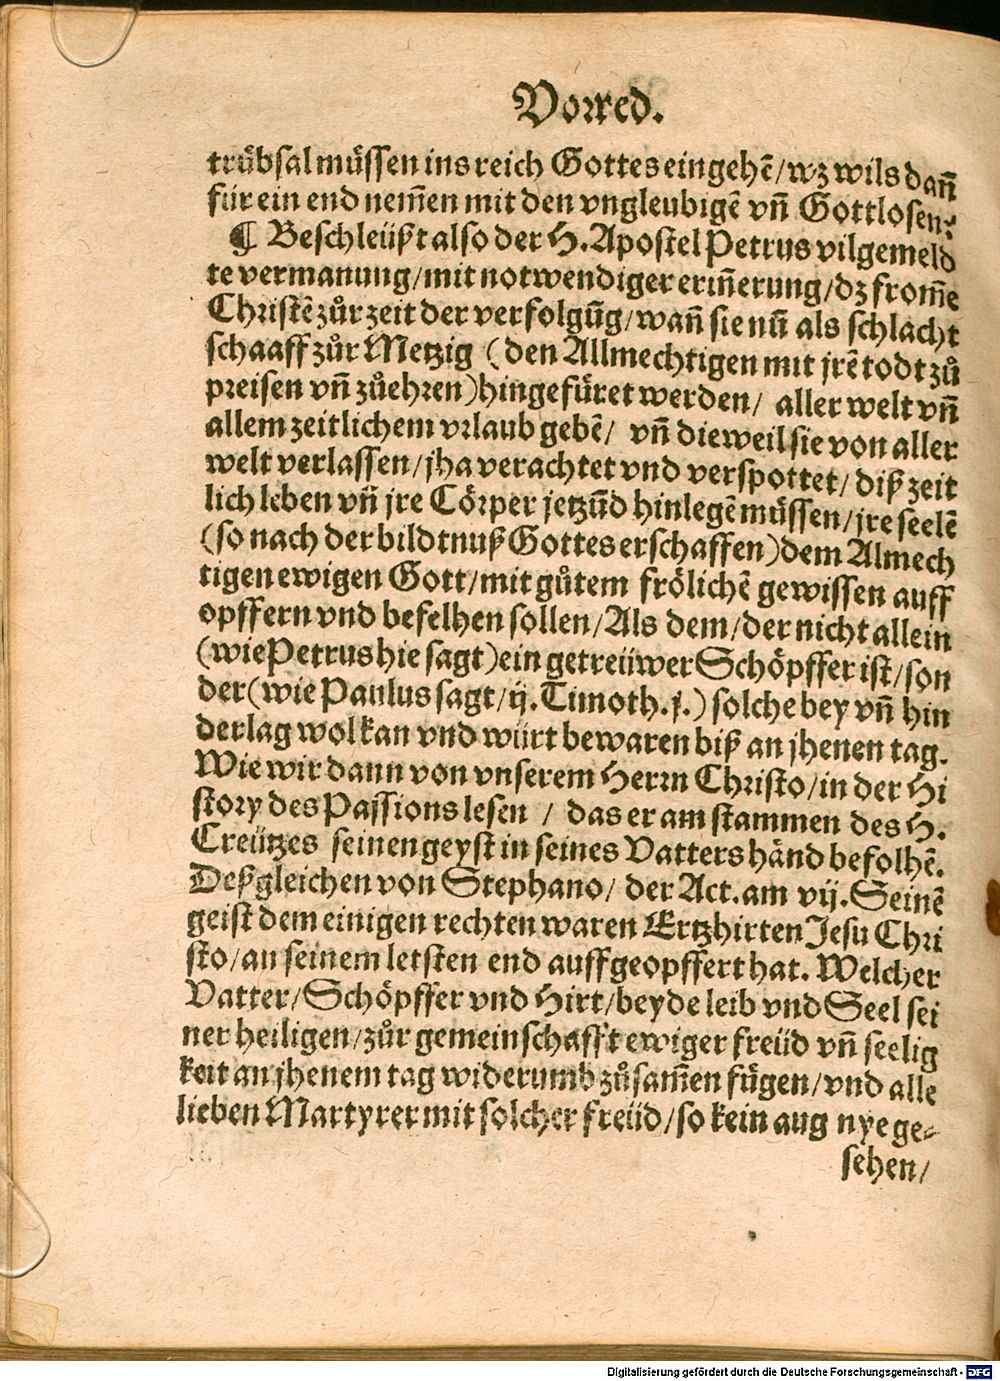 Vorred.
trübsal müssen ins reich Gottes eingehẽ/wz wils dañ
für ein end nem̃en mit den vngleubigẽ vñ Gottlosen?
¶ Beschleüßt also der H. Apostel Petrus vilgemeld
te vermanung/mit notwendiger eriñerung/dz from̃e
Christẽ zůr zeit der verfolgũg/wañ sie nũ als schlacht
schaaff zůr Metzig (den Allmechtigen mit jrẽ todt zů
preisen vñ zůehren) hingefüret werden/ aller welt vñ
allem zeitlichem vrlaub gebẽ/ vñ dieweil sie von aller
welt verlassen/jha verachtet vnd verspottet/ diß zeit
lich leben vñ jre Cörper jetzũd hinlegẽ müssen/jre seelẽ
(so nach der bildtnuß Gottes erschaffen) dem Almech
tigen ewigen Gott/mit gůtem frölichẽ gewissen auff
opffern vnd befelhen sollen/Als dem/der nicht allein
(wie Petrus hie sagt) ein getreüwer Schöpffer ist/son
der (wie Paulus sagt/ij. Timoth. j.) solche bey vñ hin
derlag wol kan vnd würt bewaren biß an jhenen tag.
Wie wir dann von vnserem Herrn Christo/in der Hi
story des Passions lesen / das er am stammen des H.
Creützes seinen geyst in seines Vatters händ befolhẽ.
Deßgleichen von Stephano/ der Act. am vij. Seinẽ
geist dem einigen rechten waren Ertzhirten Jesu Chri
sto/an seinem letsten end auffgeopffert hat. Welcher
Vatter/Schöpffer vnd Hirt/beyde leib vnd Seel sei
ner heiligen/zůr gemeinschafft ewiger freüd vñ seelig
keit an jhenem tag widerumb zůsam̃en fügen/vnd alle
lieben Martyrer mit solcher freüd/so kein aug nye ge-
sehen/
Digitalisierung gefördert durch die Deutsche Forschungsgemeinschaft - DFG